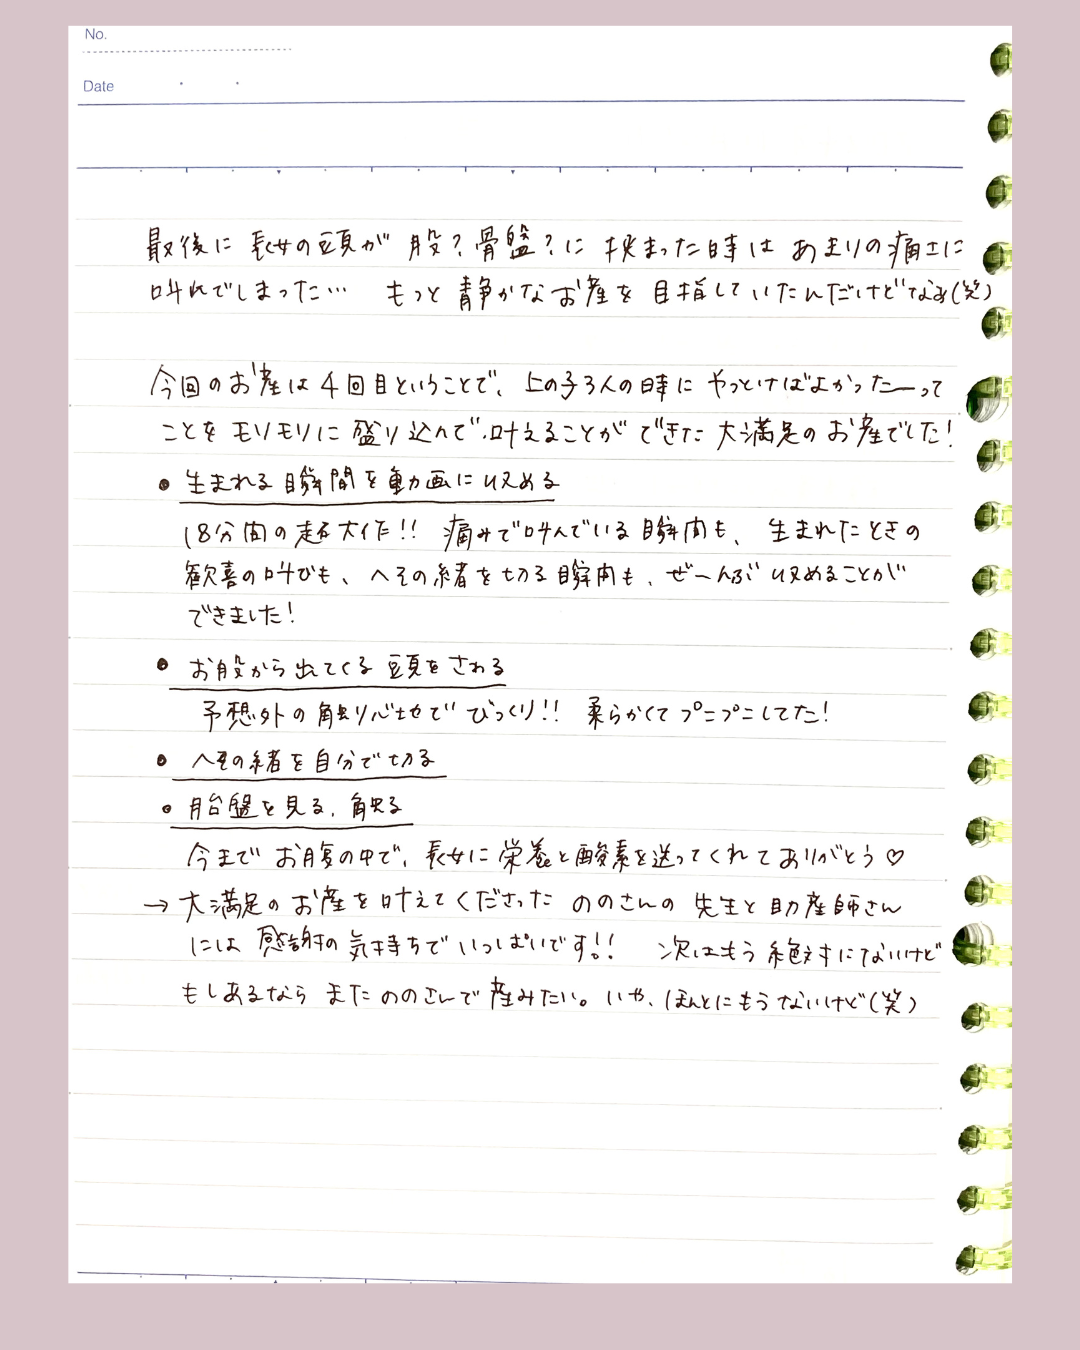 No.
Date
最後に 長女の頭が 股？骨盤？に 挟まった時は あまりの痛さに
叫んでしまった… もっと 静かなお産を 目指していたんだけどなぁ(笑)
今回のお産は 4回目ということで、上の子3人の時に やっとけばよかったーって
ことを モリモリに 盛り込んで、叶えることが できた 大満足の お産でした！
● 生まれる 瞬間を動画に収める
18分間の 超大作!! 痛みで叫んでいる瞬間も、生まれたときの
歓喜の叫びも、へその緒を切る瞬間も、ぜーんぶ 収めることが
できました！
● お股から 出てくる 頭をさわる
予想外の 触り心地で びっくり!! 柔らかくて プニプニしてた！
● へその緒を自分で切る
● 胎盤を見る、触る
今まで お腹の中で、長女に 栄養と酸素を送ってくれて ありがとう♡
→ 大満足の お産を叶えてくださった ののさんの 先生と 助産師さん
には 感謝の 気持ちで いっぱいです!! 次はもう 絶対にないけど
もしあるなら また ののさんで 産みたい。いや、ほんとにもうないけど(笑)